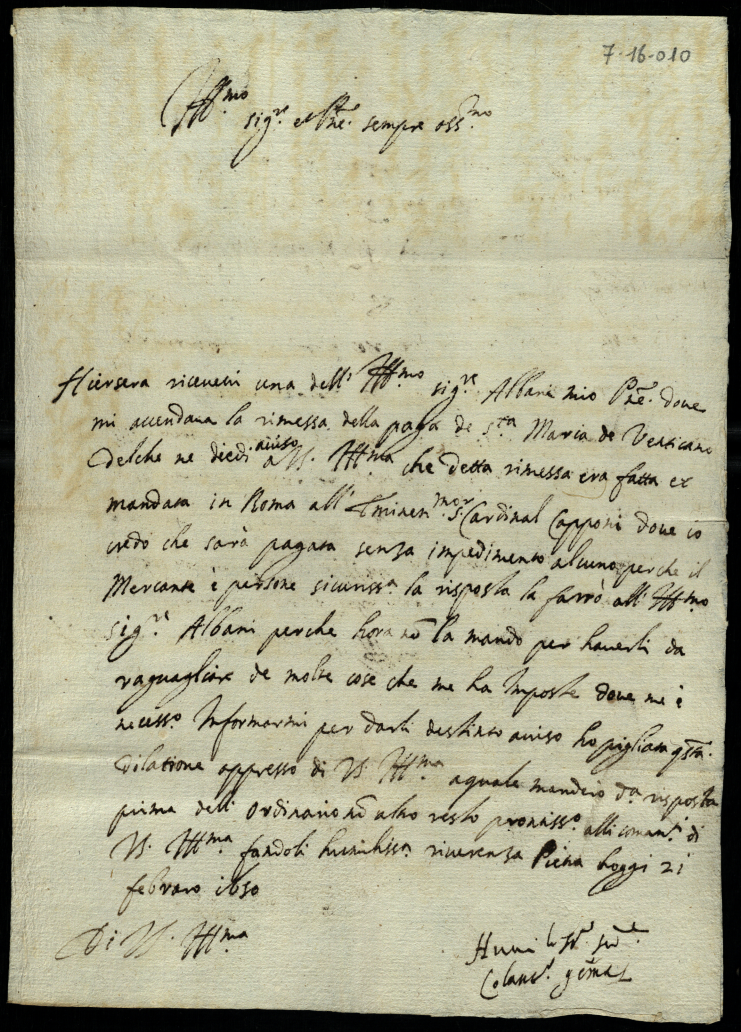 7-16-010
Ill.mo
sig.re et P̃ne. sempre oss.mo
Hiersera ricevevi una dell' Ill.mo sig.re Albani mio P̃ne. dove
mi accendava la rimessa della paga de S.ta Maria de Venticano
delche ne diedi aviso a V.S. Ill.ma che detta rimessa era fatta et
mandata in Roma all' Eminen.mo s.r Cardinal Capponi dove io
credo che sarà pagata senza impedimento alcuno, perche il
Mercante è persone sicuriss.a la risposta la farrò all' Ill.mo
sig.re Albani perche hora nõ la mando per haverli da
raguagliare de molte cose che me ha Imposte dove me è
necess.o Informarmi per darli destinto aviso ho pigliata q̃sta
dilatione appresso di V.S. Ill.ma a quale manderò d.a risposta
prima dell' ordinario nõ altro resto prontiss.o alli comanti di
V.S. Ill.ma fandoli humiliss.a riverenza Pietra hoggi 21
febraro 1650
Di V.S. Ill.ma
Humiliss.o ser.e